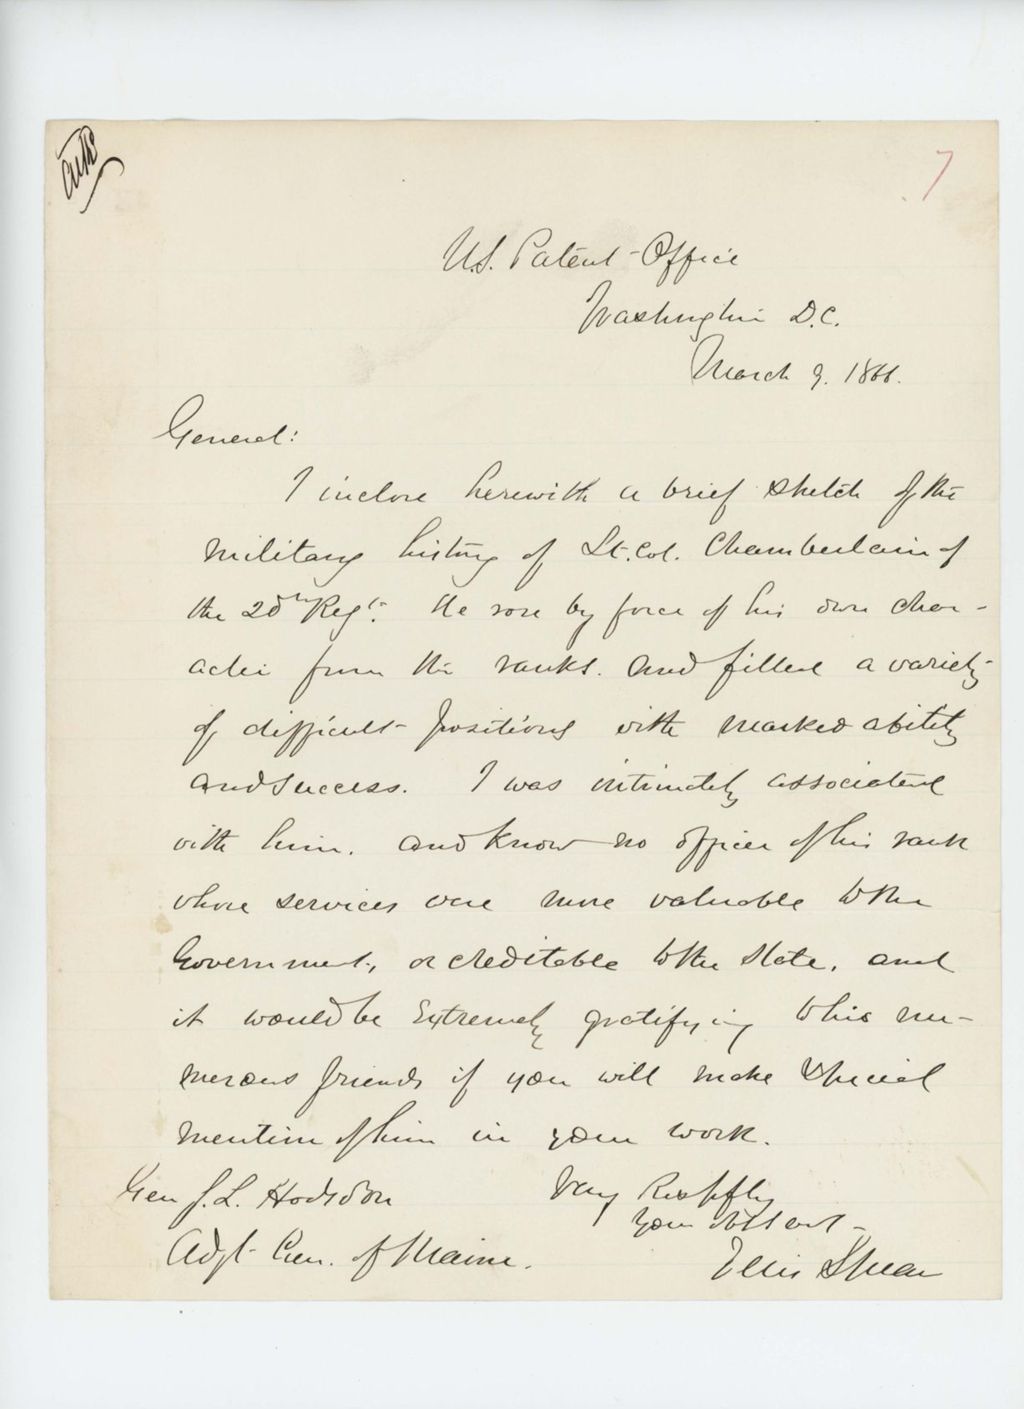 7
U.S. Patent Office
Washington D.C.
March 9. 1866.
General:
I inclose herewith a brief sketch of the
military history of Lt. Col. Chamberlain of
the 20th Regt. He rose by force of his own char-
acter from the ranks. and filled a variety
of difficult positions with marked ability
and success. I was intimately associated
with him. and know no officer of his rank
whose services were more valuable to the
Government, or creditable to the State, and
it would be extremely gratifying to his nu-
merous friends if you will make special
mention of him in your work.
Gen J. L. Hodsdon
Adjt Gen. of Maine.
Very Respffly
Your obt servt
Ellis Spear